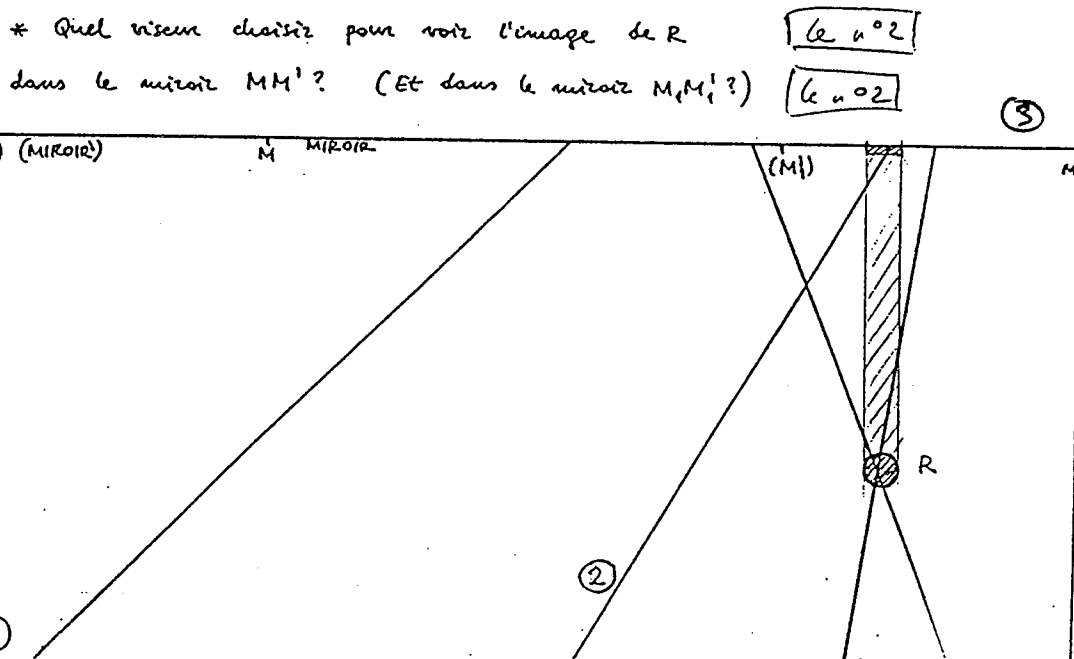 * Quel viseur choisir pour voir l'image de R le n°2
dans le miroir MM' ? (Et dans le miroir M₁M₁' ?) le n°2
3
(MIROIR') M MIROIR (M₁') M
R
2